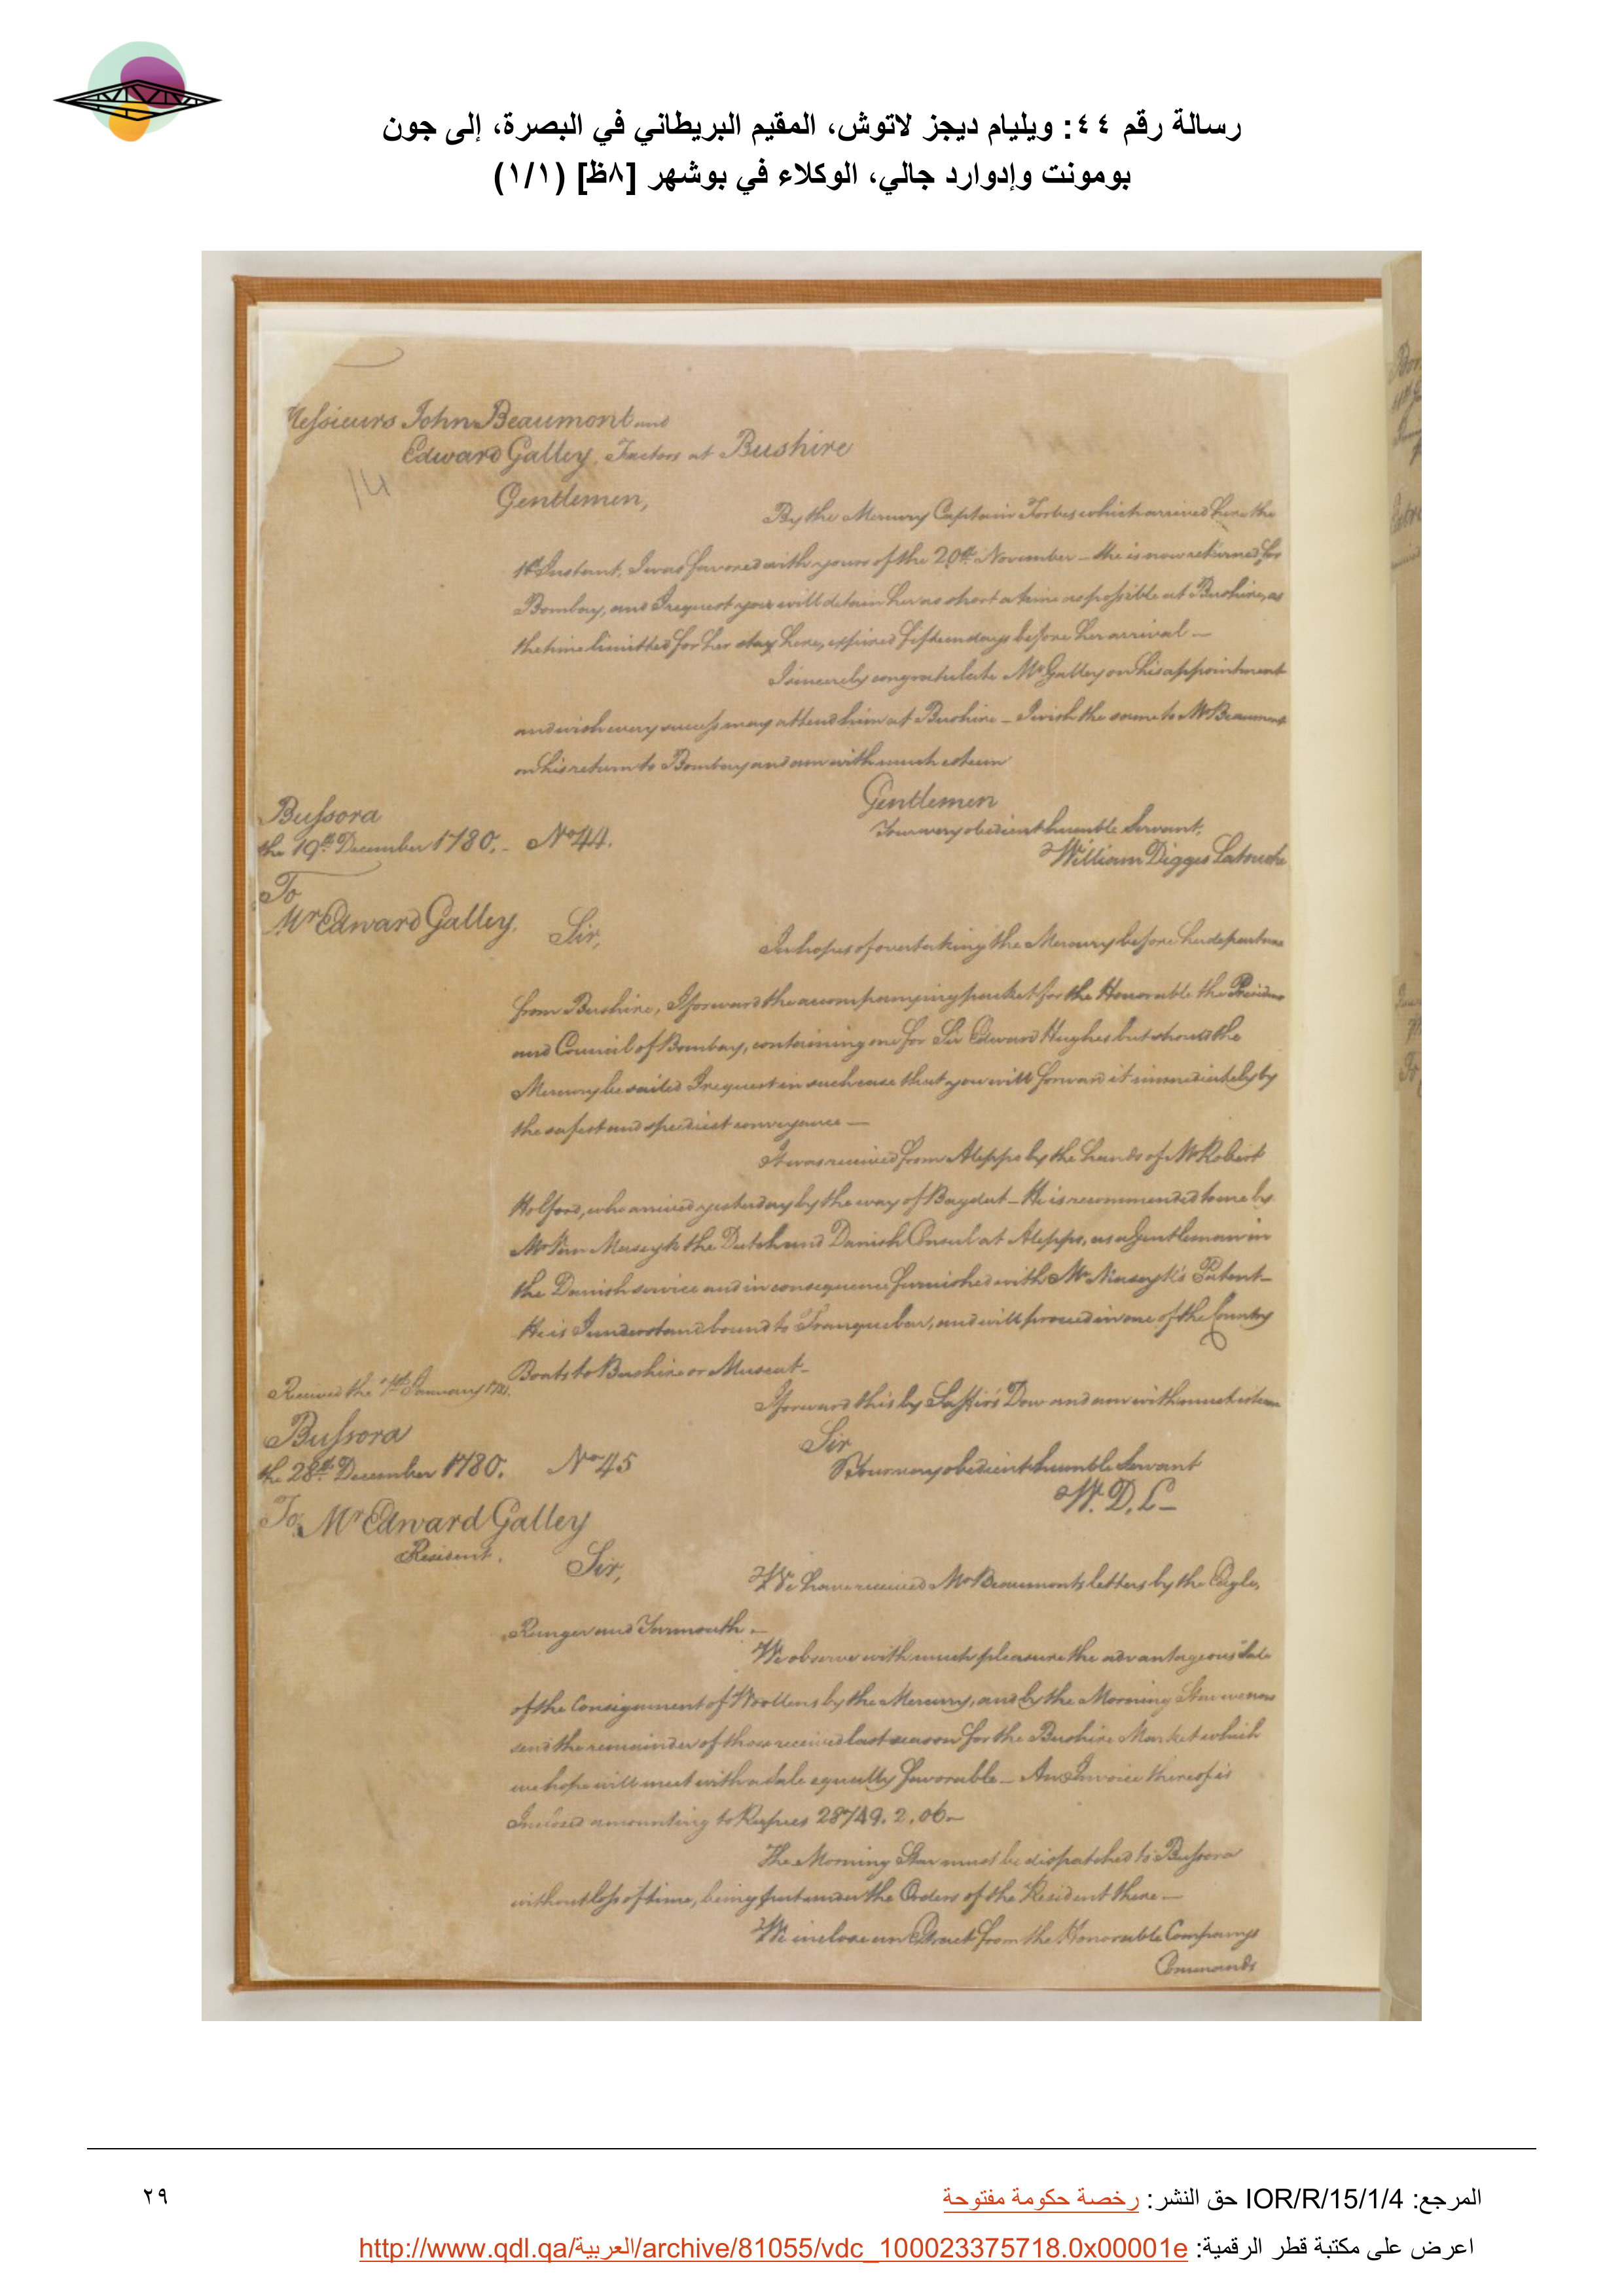 رسالة رقم ٤٤: ويليام ديجز لاتوش، المقيم البريطاني في البصرة، إلى جون
بومونت وإدوارد جالي، الوكلاء في بوشهر [٨ظ] (١/١)
Messieurs John Beaumont and
Edward Galley, Factors at Bushire
14
Gentlemen,
By the Mercury Captain Forbes which arrived here the
1st Instant, I was favored with yours of the 20th November _ She is now returned for
Bombay, and I request you will detain her as short a time as possible at Bushire, as
the time limitted for her stay here, expired fifteen days before her arrival _
I sincerely congratulate Mr Galley on his appointment
and wish every success may attend him at Bushire _ I wish the same to Mr Beaumont
on his return to Bombay and am with much esteem
Gentlemen
Your very obedient humble Servant,
William Digges Latouche
Bussora
the 19th December 1780. _ No 44.
To
Mr Edward Galley.
Sir,
In hopes of overtaking the Mercury before her departure
from Bushire, I forward the accompanying packet for the Honorable the President
and Council of Bombay, containing one for Sir Edward Hughes but should the
Mercury be sailed I request in such case that you will forward it immediately by
the safest and speediest conveyance _
It was received from Aleppo by the hands of Mr Robert
Holford, who arrived yesterday by the way of Bagdat _ He is recommended to me by
Mr Van Maseyk the Dutch and Danish Consul at Aleppo, as a Gentleman in
the Danish service and in consequence furnished with Mr Maseyk's Patent _
He is I understand bound to Tranquebar, and will proceed in one of the Country
Boats to Bushire or Muscat _
I forward this by Dow and am with much esteem
Received the January 1781.
Sir
Your very obedient humble Servant
W. D. L _
Bussora
the 28th December 1780. No 45
To, Mr Edward Galley
Resident.
Sir,
We have received Mr Beaumonts letters by the Eagle,
Ranger and Yarmouth. _
We observe with much pleasure the advantageous Sale
of the Consignment of Woollens by the Mercury, and by the Morning Star we now
send the remainder of those received last season for the Bushire Market which
we hope will meet with a sale equally favorable _ An Invoice thereof is
Inclosed amounting to Rupees 28749. 2. 06 _
The Morning Star must be dispatched to Bussora
without loss of time, being put under the Orders of the Resident there _
We inclose an Extract from the Honorable Companys
Commands
المرجع: IOR/R/15/1/4 حق النشر: رخصة حكومة مفتوحة
٢٩
اعرض على مكتبة قطر الرقمية: http://www.qdl.qa/العربية/archive/81055/vdc_100023375718.0x00001e